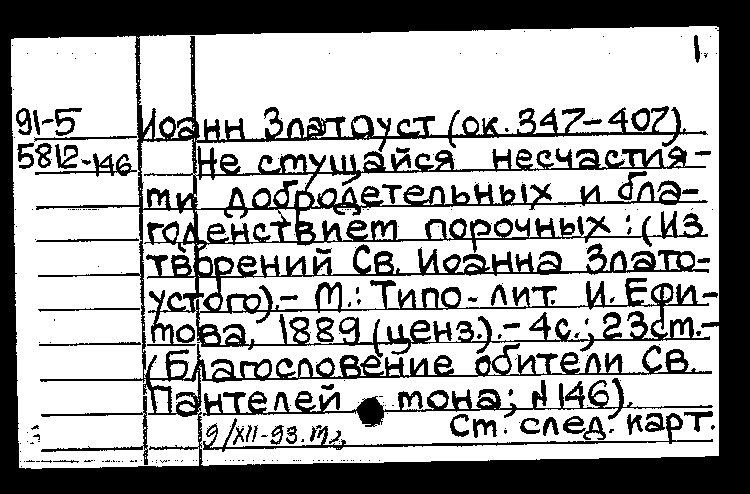 1.
91-5 Иоанн Златоуст (ок. 347-407).
5812-146 Не смущайся несчастия-
ми добродетельных и бла-
годенствием порочных : (Из
творений Св. Иоанна Злато-
устого).- М.: Типо-лит. И. Ефи-
мова, 1889 (ценз.).- 4с.; 23см.-
(Благословение обители Св.
Пантелей мона; N 146).
9/XII-93. Ст. след. карт.